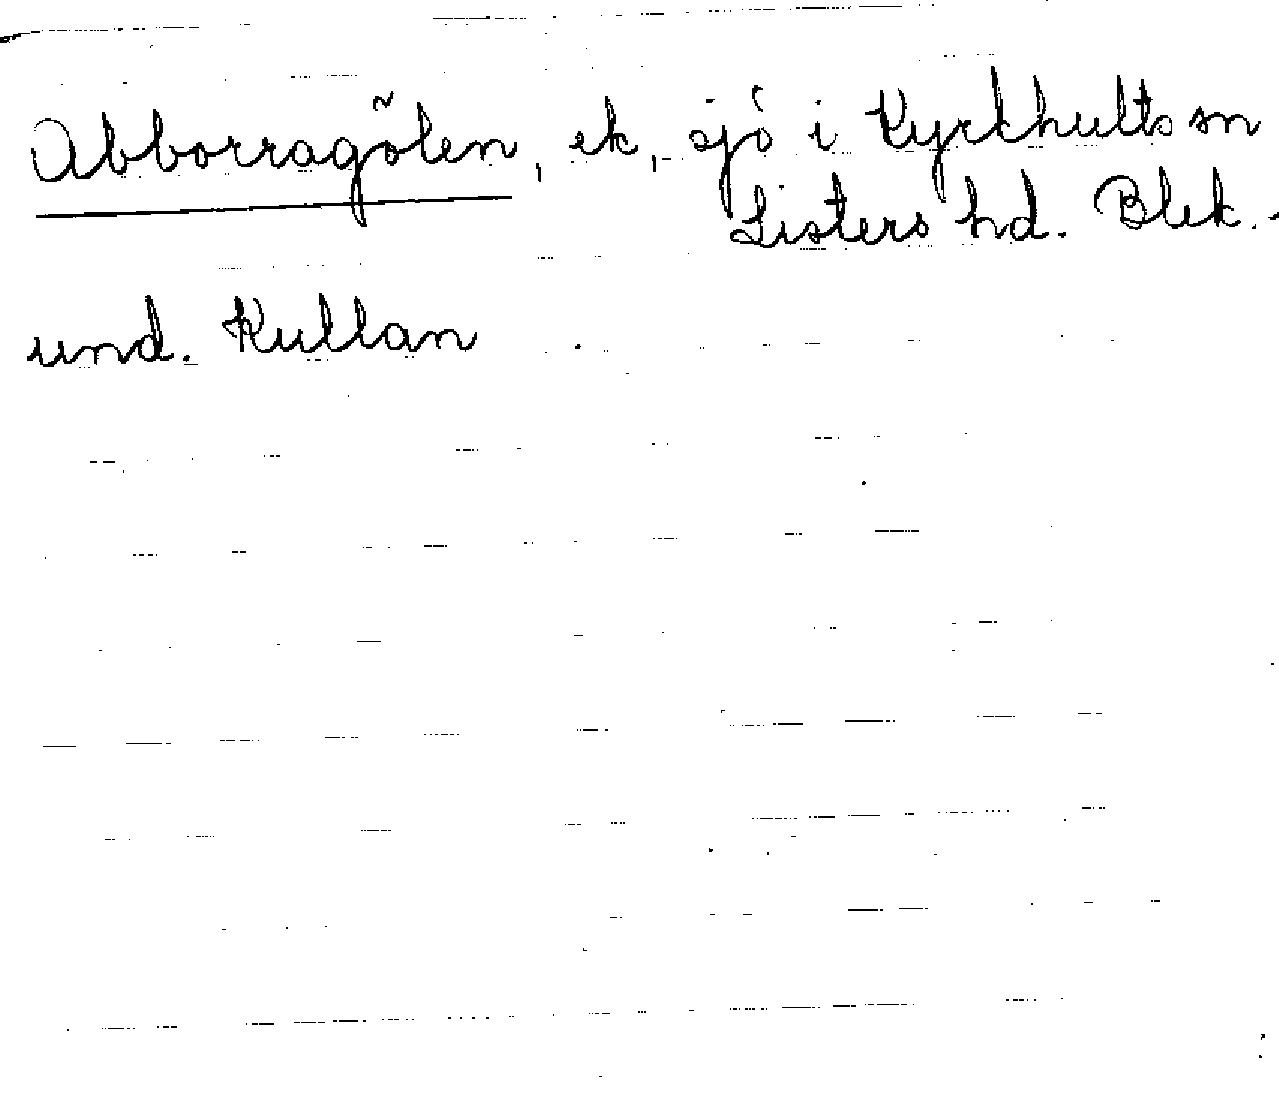 Abborragölen, ek, sjö i Kyrkhults sn
Listers hd. Blek.
und. Kullan